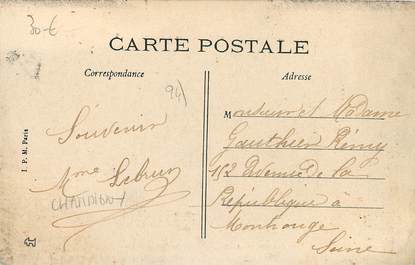 30-€
CARTE POSTALE
Correspondance
Adresse
94)
Souvenir
Mme Lebrun
CHATILLON
I. P. M. Paris
Monsieur et Madame
Gauthier Rémy
152 Avenue de la
République à
Montrouge
Seine